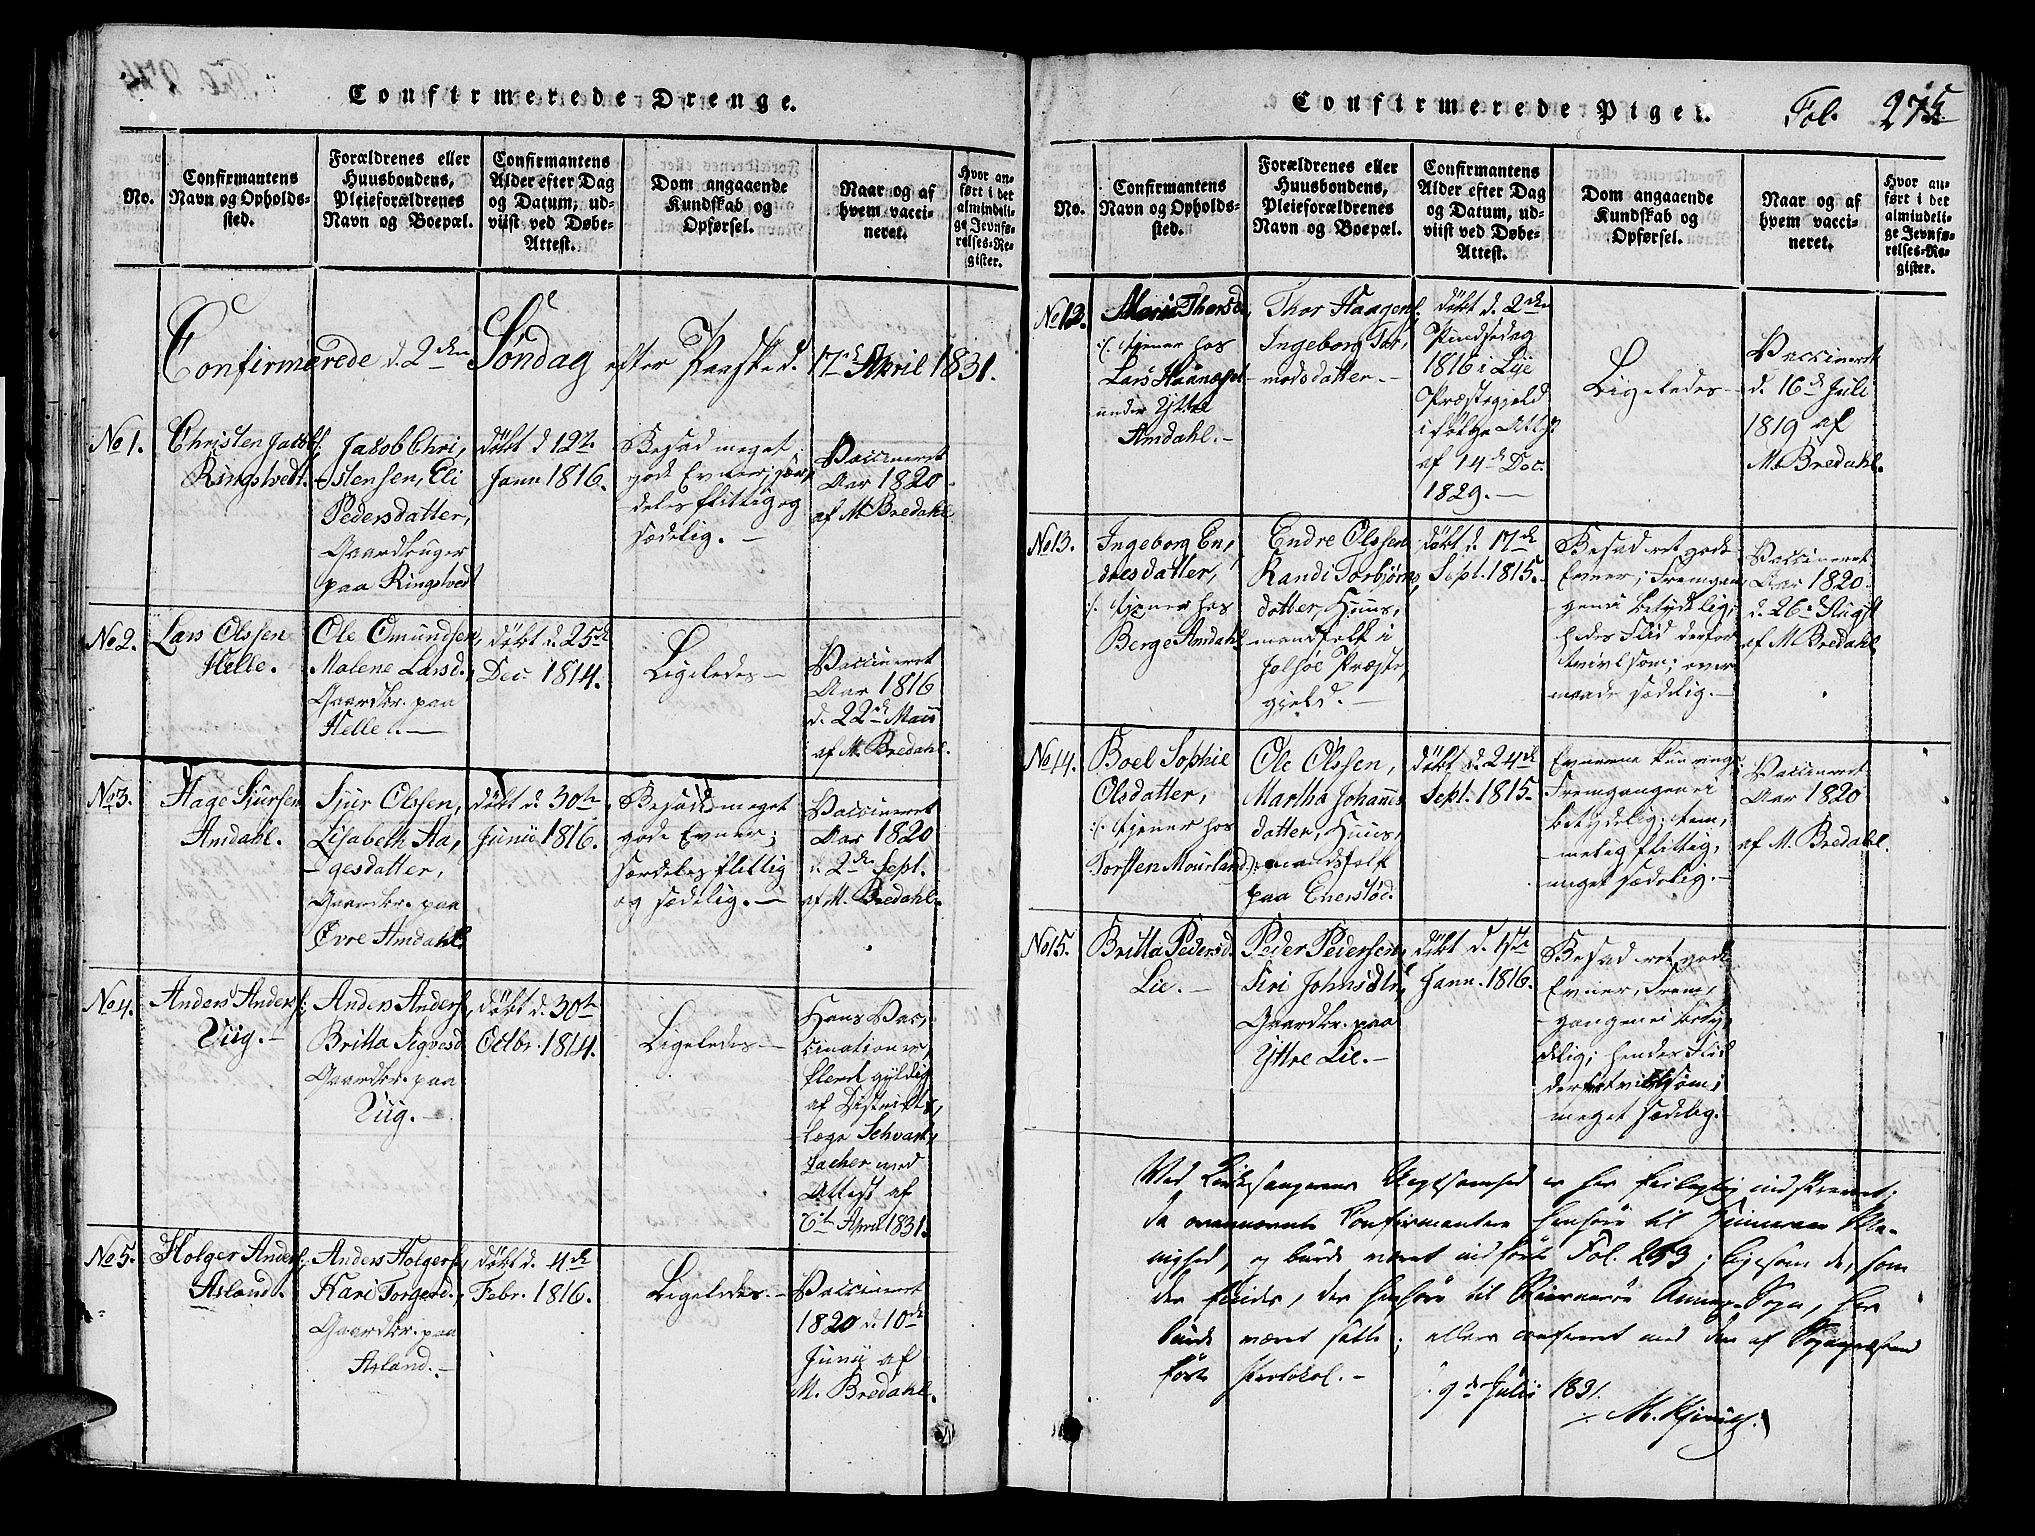 Confirmerede Drenge.
No.
Confirmantens
Navn og Opholds-
sted.
Forældrenes eller
Huusbondens,
Pleieforældrenes
Navn og Boepæl.
Confirmantens
Alder efter Dag
og Datum, ud-
viist ved Døbe-
Attest.
Dom angaaende
Kundskab og
Opførsel.
Naar og af
hvem vacci-
neret.
Hvor an-
ført i det
almindeli-
ge Jevnfø-
relses-Re-
gister.
Confirmerede d. 2den Søndag efter Paaske d. 17de April 1831.
No 1.
Christen Jacobs.
Ringstvedt.
Jacob Chri,
stensen, Eli
Pedersdatter,
Gaardbruger
paa Ringstvedt
døbt d 12te
Janu 1816.
Besad meget
gode Evner; sær,
deles flittig og
sædelig. —
Vaccineret
Aar 1820
af M. Bredahl
No 2.
Lars Olssen
Helle.
Ole Omundsen,
Malene Larsd.,
Gaardbr. paa
Helle. —
døbt d. 25de
Dec 1814.
Ligeledes —
Vaccineret
Aar 1816
d. 22de Maii
af M. Bredahl.
No 3.
Hage Sjursen
Amdahl.
Sjur Olssen,
Lisabeth Aa,
gesdatter,
Gaardbr. paa
Øvre Amdahl
døbt d. 30te
Junii 1816.
Besad meget
gode Evner;
særdeles flittig
og sædelig. —
Vaccineret
Aar 1820
d. 2den Sept.
af M. Bredahl.
No 4.
Anders Anders.
Viig. —
Anders Anders.,
Britta Sigvesd
Gaardbr. paa
Viig. —
døbt d. 30te
Octbr. 1814.
Ligeledes —
Hans Vac,
cination er,
klært gyldig
af Districts,
læge Schvart,
zacher med
Attest af
6te April 1831.
No 5.
Holger Anders.
Asland.
Anders Holgers.,
Kari Torgerd.,
Gaardbr. paa
Asland. —
døbt d. 4de
Febr. 1816.
Ligeledes. —
Vaccineret
1820 d. 10de
Junii af
M. Bredahl.
Confirmerede Piger.
Fol. 275
No.
Confirmantens
Navn og Opholds-
sted.
Forældrenes eller
Huusbondens,
Pleieforældrenes
Navn og Boepæl.
Confirmantens
Alder efter Dag
og Datum, ud-
viist ved Døbe-
Attest.
Dom angaaende
Kundskab og
Opførsel.
Naar og af
hvem vacci-
neret.
Hvor an-
ført i det
almindeli-
ge Jevnfø-
relses-Re-
gister.
No 12.
Maria Thorsd,
tjener hos
Lars
under Ytre
Amdahl. —
Thor Haagens.,
Ingeborg Tor,
modsdatter. —
døbt d. 2den
Pindsedag
1816 i Lye
Præstegjeld
ifølge Att.
af 14de Dec.
1829. —
Ligeledes —
Vaccineret
d. 16de Juli
1819 af
M. Bredahl.
No 13.
Ingeborg En,
dresdatter,
tjener hos
Berge Amdahl
Endre Olssen
Randi Torbjørns,
datter, Huus,
mandsfolk i
Jelsøe Præste,
gjeld. —
døbt d. 17de
Sept. 1815.
Besad ret gode
Evner; Fremgan,
gen ei betydelig;
hendes Flid derfor
tvivlsom; over
maade sædelig. —
Vaccineret
Aar 1820
d. 26de Augst
af M. Bredahl
No 14.
Boel Sophie
Olsdatter,
tjener hos
Torsten Mourland
Ole Olssen,
Martha Johannes
datter, Huus,
mandsfolk
paa Enerstød.
døbt d. 24de
Sept. 1815.
Evnerne kun ringe
Fremgangen ei
betydelig; tem,
melig flittig;
meget sædelig. —
Vaccineret
Aar 1820
af M. Bredahl.
No 15.
Britta Pedersd.
Lie. —
Peder Pedersen,
Siri Johnsdtr,
Gaardbr. paa
Yttre Lie. —
døbt d. 1ste
Jann. 1816.
Besad ret gode
Evner, Frem,
gangen ei bety,
delig; hendes Flid
derfor tvivlsom;
meget sædelig.
Ved Kirkesangerens Uagtsomhed er her feilagtig indskrevet;
da ovennævnte Confirmantere henhøre til Me-
nighed, og burde været indført Fol. 253; ligesom de, som
der findes, der henhøre til Annex-Sogn, her
burde været satte; ellers confereret med den af Sognepræsten
førte Protokol. —
9de Julii 1831.
M.